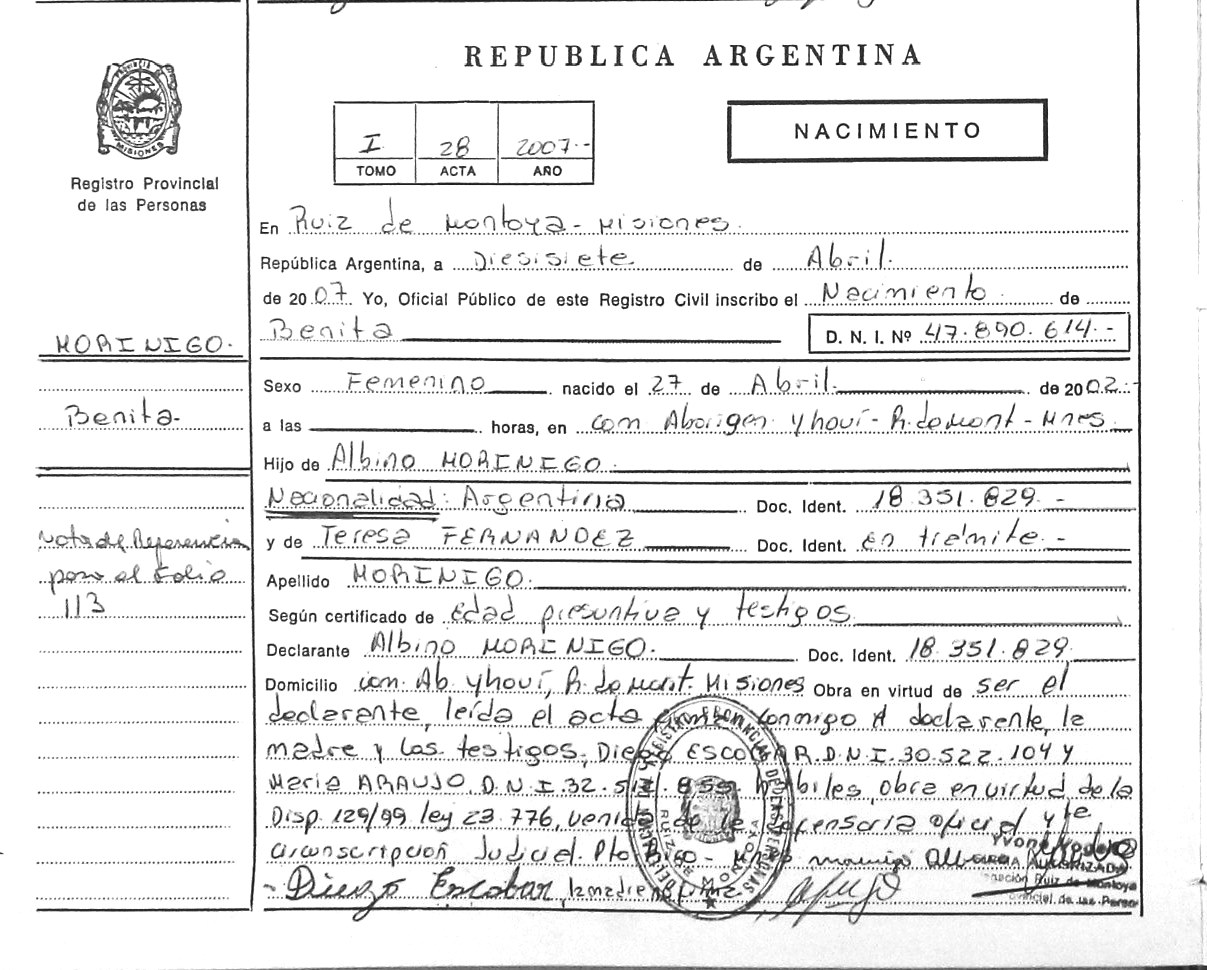 REPUBLICA ARGENTINA
PROVINCIA DE
MISIONES
Registro Provincial
de las Personas
I 28 2007.-
TOMO ACTA AÑO
NACIMIENTO
En Ruiz de Montoya - Misiones.
República Argentina, a Diesisiete de Abril.
de 2007. Yo, Oficial Público de este Registro Civil inscribo el Nacimiento de
Benita D. N. I. Nº 47.890.614.-
MORINIGO.
Sexo Femenino nacido el 27 de Abril. de 2002.-
Benita-
a las horas, en com Aborigen Yhoví - R. de Mont - Mnes
Hijo de Albino MORINIGO.
Nacionalidad: Argentina Doc. Ident. 18.351.829.-
Nota de Referencia
para el Folio
113
y de Teresa FERNANDEZ Doc. Ident. en trámite.-
Apellido MORINIGO.
Según certificado de Edad presuntiva y testigos.
Declarante Albino MORINIGO. Doc. Ident. 18.351.829.
Domicilio com. Ab. Yhoví, R. de Mont. Misiones Obra en virtud de ser el
declarante, leída el acta conmigo el declarente, la
madre y los testigos, Diego ESCOBAR. D.N.I. 30.522.104 y
Maria ARAUJO. D.N.I. 32.512.855 habiles, obra en virtud de la
Disp. 129/99 ley 23.776, de la Defensoria oficial
circunscripción Judicial. Pto Rico -
- Diego Escobar, la madre no firma.
AUTORIZADA
Ruiz de Montoya
Provincial de las Personas